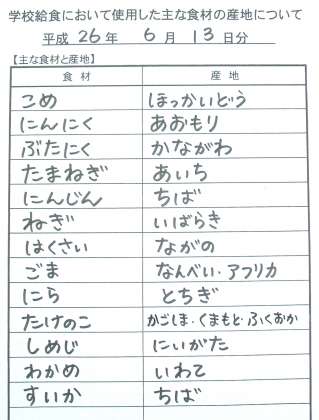 学校給食において使用した主な食材の産地について
平成 26 年 6 月 13 日分
【主な食材と産地】
食材 産地
こめ ほっかいどう
にんにく あおもり
ぶたにく かながわ
たまねぎ あいち
にんじん ちば
ねぎ いばらき
はくさい ながの
ごま なんべい・アフリカ
にら とちぎ
たけのこ かごしま・くまもと・ふくおか
しめじ にいがた
わかめ いわて
すいか ちば